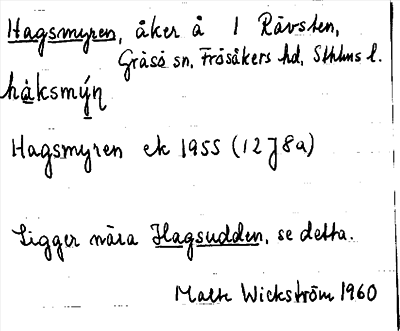 Hagsmyren, åker å 1 Rävsten,
Gräsö sn, Frösåkers hd, Sthlms l.
hàksmýn̥
Hagsmyren ek 1955 (12J8a)
Ligger nära Hagsudden, se detta.
Malte Wickström 1960